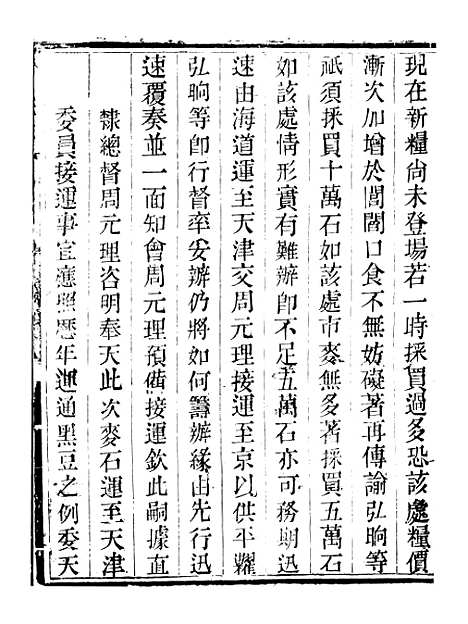 現在新糧尚未登場若一時採買過多恐該處糧價
漸次加增於閭閻口食不無妨礙著再傳諭弘晌等
祇須採買十萬石如該處市麥無多著採買五萬石
如該處情形實有難辦卽不足五萬石亦可務期迅
速由海道運至天津交周元理接運至京以供平糶
弘晌等卽行督率妥辦仍將如何籌辦緣由先行迅
速覆奏並一面知會周元理預備接運欽此嗣據直
隸總督周元理咨明奉天此次麥石運至天津
委員接運事宜應照歷年運通黑豆之例委天